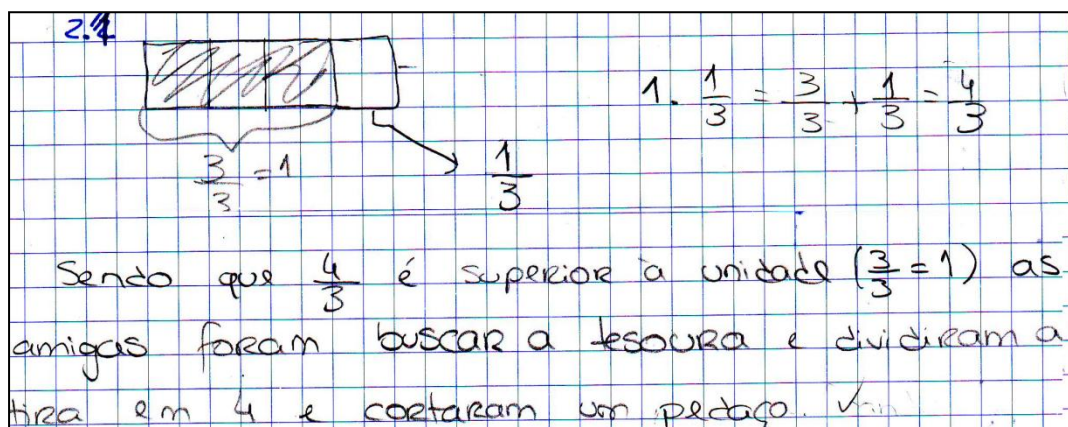 2.1
1. 1/3 = 3/3 + 1/3 = 4/3
3/3 = 1
1/3
Sendo que 4/3 é superior à unidade (3/3 = 1) as
amigas foram buscar a tesoura e dividiram a
tira em 4 e cortaram um pedaço.